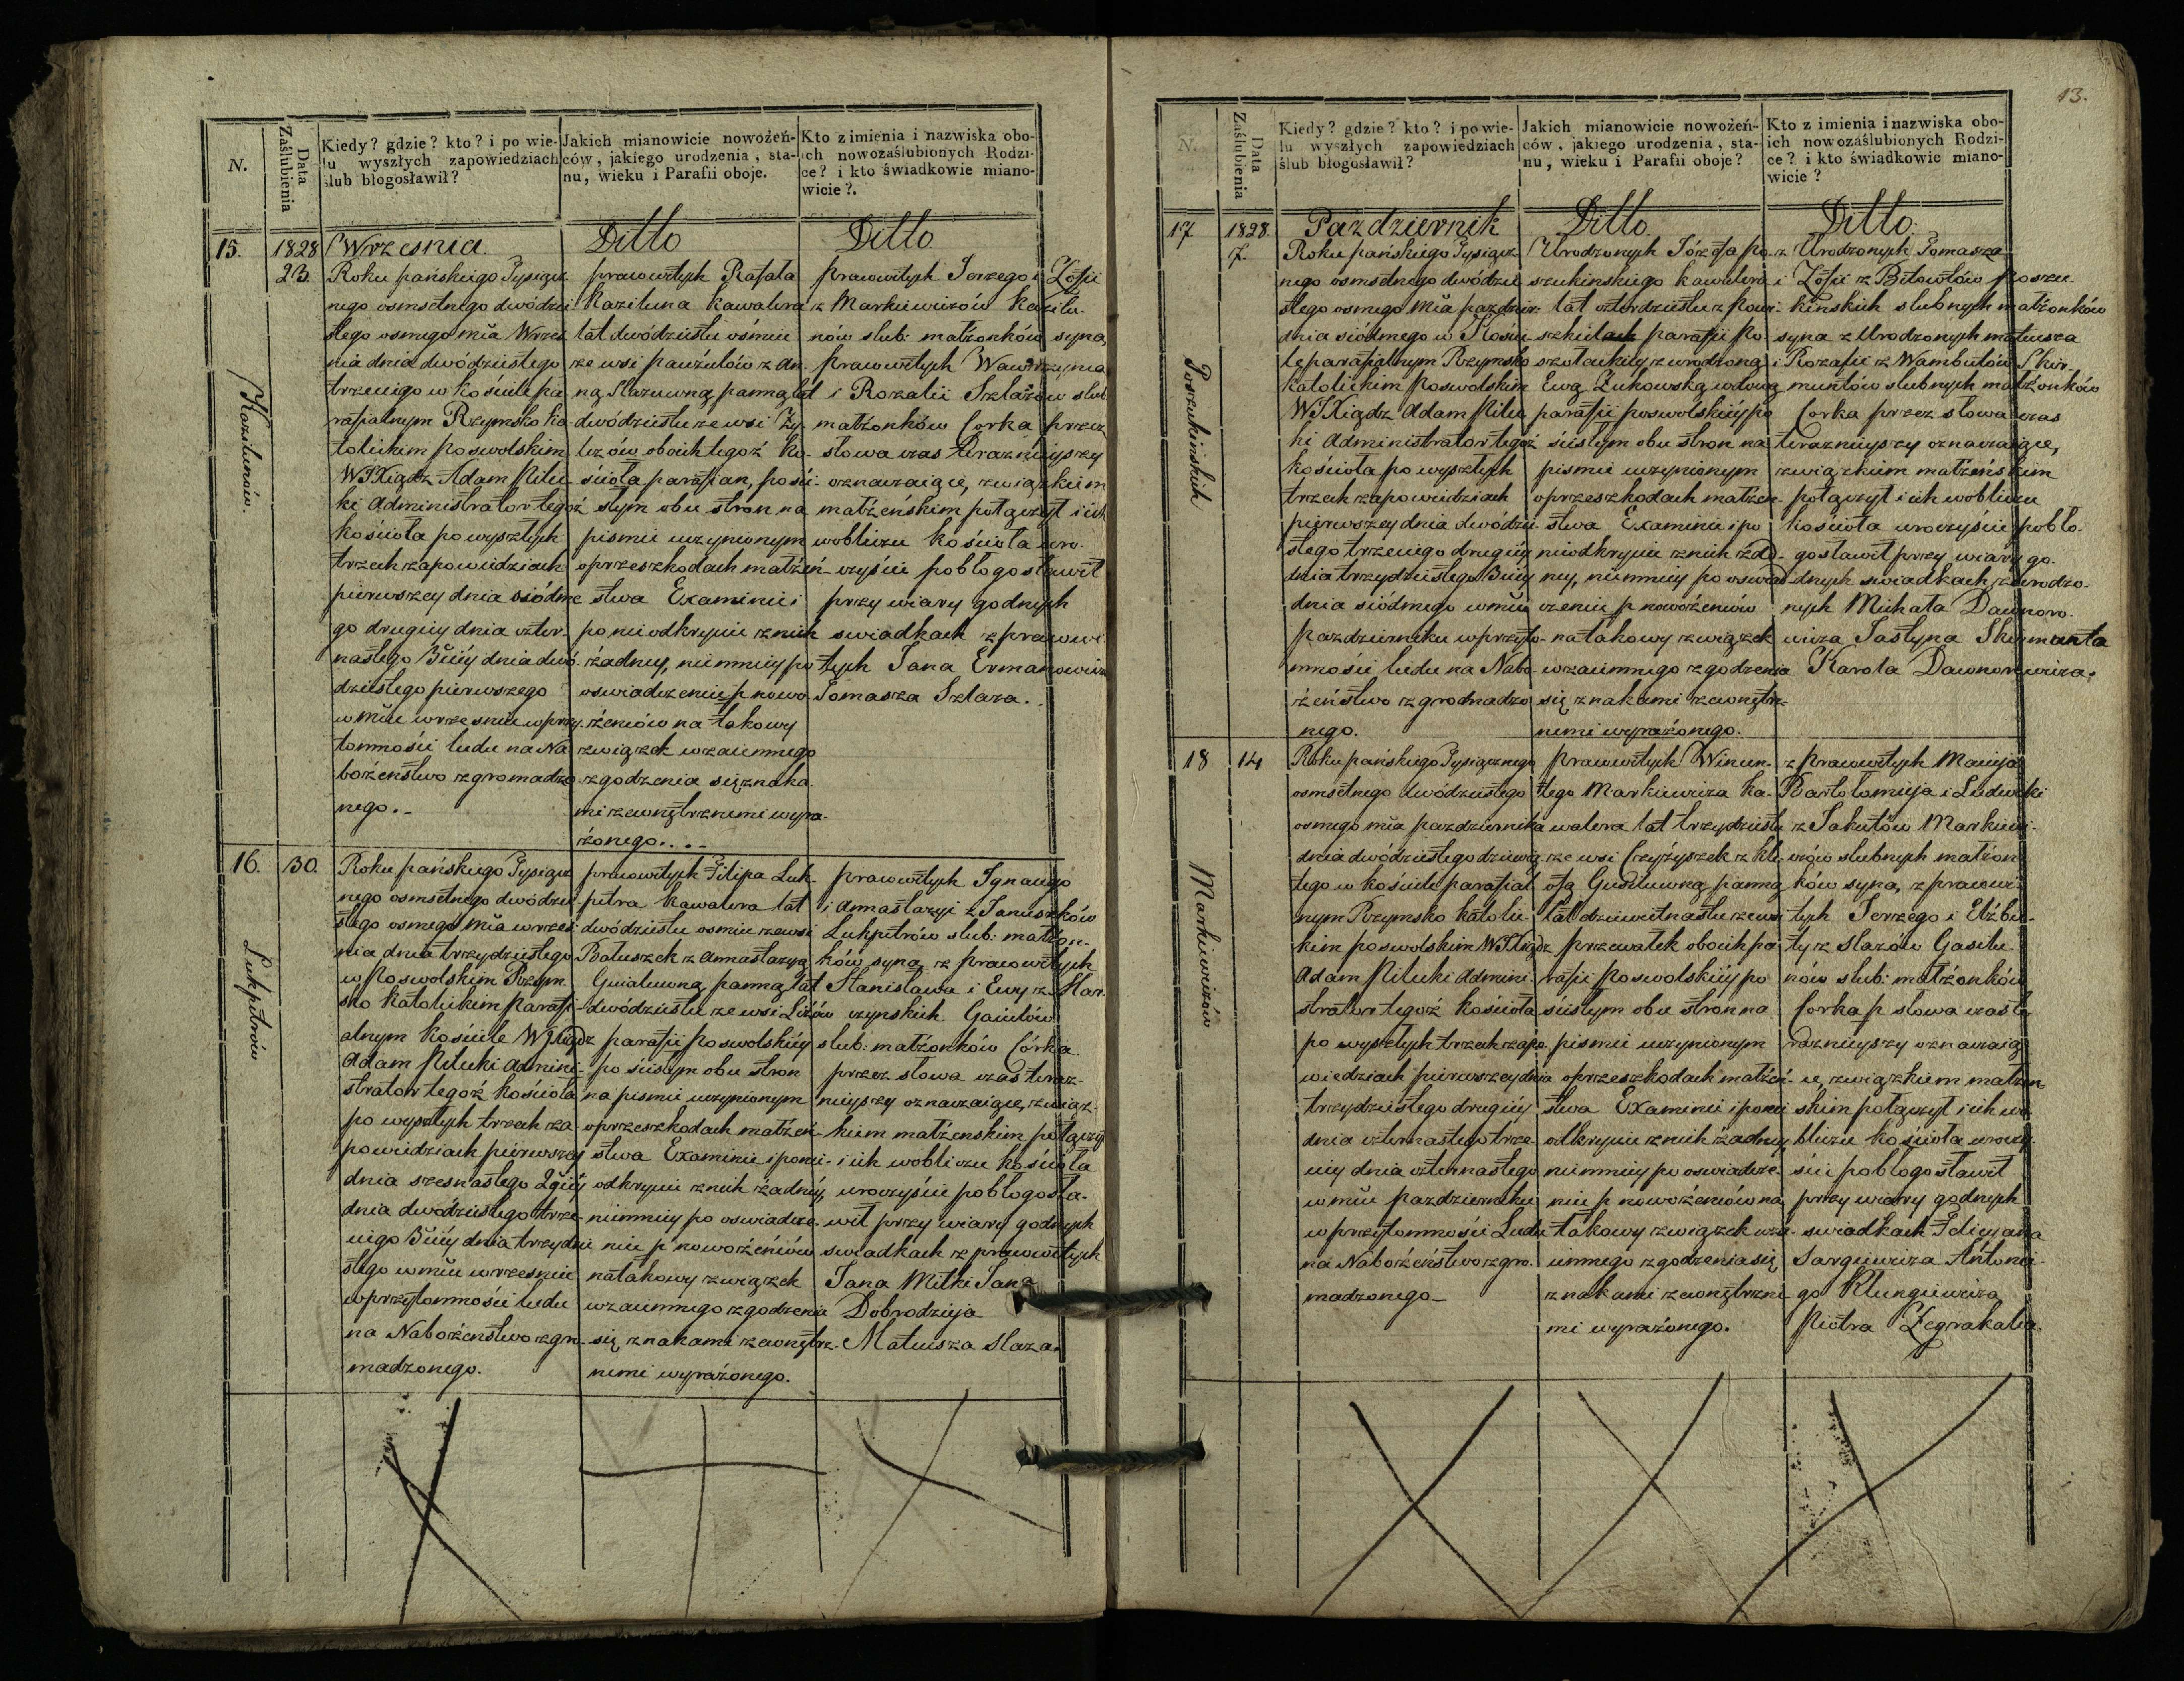 N.
Data
Zaślubienia
Kiedy? gdzie? kto? i po wie-
lu wyszłych zapowiedziach
ślub błogosławił?
Jakich mianowicie nowożeń-
ców, jakiego urodzenia, sta-
nu, wieku i Parafii oboje.
Kto z imienia i nazwiska obo-
ich nowozaślubionych Rodzi-
ce? i kto świadkowie miano-
wicie?.
15.
1828
23
Kazilunów.
Wrzesnia.
Roku pańskiego Tysiącz
nego osmsetnego dwódzie
stego osmego mĩa Wrzes
nia dnia dwódziestego
trzeciego w kościele pa
rafialnym Rzymsko ka
tolickim poswolskim
WJXiądz Adam Pilec
ki Administrator tegoż
kościoła po wyszłych
trzech zapowiedziach
pierwszey dnia siódme
go drugiey dnia czter-
nastego 3ciey dnia dwó
dziestego pierwszego
w mĩcu wrzesniu w przy
tomności ludu na Na
bożeństwo zgromadzo
nego.-
Ditto
prawowitych Rafała
Kaziluna kawalera
lat dwódziestu ośmiu
ze wsi Paużulów z An
ną Slazuwną panną lat
dwódziestu ze wsi Ży-
lezów oboich tegoż ko-
ścioła parafian, po ści-
słym obu stron na
pismie uczynionym
o przeszkodach małżeń-
stwa Examinie i
po nie odkryciu z nich
żadney, niemniey po
oswiadczeniu p nowo
żeniów na takowy
związek wzaiemnego
zgodzenia się znaka
mi zewnętrznemi wyra-
żonego....
Ditto
prawowitych Jerzego i Zofii
z Markiewiczów Kazilu-
nów slub: małżonków syna,
prawowitych Wawrzyńca
i Rozalii Szlażów slub
małżonków Corka przez
słowa czas Terazniyszy
oznaczaiące, związkiem
małżeńskim połączył i ich
w obliczu kościoła uro-
czyście pobłogosławił
przy wiary godnych
swiadkach z prawowi
tych Jana Ermanowicza
Tomasza Szlaza.
16.
30.
Lukpetrów
Roku pańskiego Tysiącz
nego osmsetnego dwódzie
stego osmego mĩa wrzes
nia dnia trzydziestego
w Poswolskim Rzym
sko Katolickim Parafi
alnym kościele WJXiądz
Adam Pilecki Admini-
strator tegoż kościoła
po wyszłych trzech za
powiedziach pierwszey
dnia szesnastego 2giey
dnia dwódziestego trze-
ciego 3ciey dnia trzydzie
stego w mĩcu wrzesniu
w przytomności ludu
na Nabożeństwo zgro-
madzonego.
prawowitych Filipa Luk-
petra Kawalera lat
dwódziestu osmiu ze wsi
Batuszek z Annastazyą
Gwialuwną panną lat
dwódziestu ze wsi Liżów
parafii Poswolskiey
po ścisłym obu stron
na pismie uczynionym
o przeszkodach małżeń-
stwa Examinie i po nie-
odkryciu z nich żadney,
niemniey po oswiadcze-
niu p nowożeniów
na takowy związek
wzaiemnego zgodzenia
się znakami zewnętrz-
nemi wyrażonego.
prawowitych Ignacego
i Annastazyi z Januszków
Lukpetrów slub: małżon-
ków syna, z prawowitych
Stanisława i Ewy z Mar
czynskich Gaielów
slub: małżonków Córka
przez słowa czas teraz-
nieyszy oznaczaiące, związ-
kiem małżenskim połączył
i ich w obliczu kościoła
uroczyście pobłogosła-
wił przy wiary godnych
swiadkach z prawowitych
Jana Mitki Jana
Dobrodzieja
Mateusza Slaza.
13.
N.
Data
Zaślubienia
Kiedy? gdzie? kto? i po wie-
lu wyszłych zapowiedziach
ślub błogosławił?
Jakich mianowicie nowożeń-
ców, jakiego urodzenia, sta-
nu, wieku i Parafii oboje?
Kto z imienia i nazwiska obo-
ich nowozáślubionych Rodzi-
ce? i kto świadkowie miano-
wicie?
17
1828.
7.
Poszukińskich
Pazdziernik
Roku pańskiego Tysiącz-
nego osmsetnego dwódzie
stego osmego mĩa pazdzier-
dnia siódmego w Kości-
ele parafialnym Rzymsko
katolickim Poswolskim
WJXiądz Adam Pilec
ki Administrator tegoż
kościoła po wyszłych
trzech zapowiedziach
pierwszey dnia dwódzie
stego trzeciego drugiey
dnia trzydziestego 3ciey
dnia siódmego w mĩcu
pazdzierniku w przyto-
mności ludu na Nabo-
żeństwo zgromadzo
nego.
Ditto.
Urodzonych Józefa Po-
szukinskiego kawalera
lat czterdziestu z Powi
szkielach parafii Po
szołackiey z urodzoną
Ewą Żukowską wdową
parafii poswolskiey po
ścisłym obu stron na
pismie uczynionym
o przeszkodach małżeń-
stwa Examinie i po
nieodkryciu z nich żad-
ney, niemniey po oswiad
czeniu p nowożeniów
na takowy związek
wzaiemnego zgodzenia
się znakami zewnętrz-
nemi wyrażonego.
Ditto.
z Urodzonych Tomasza
i Zofii z Bitowtów Poszu-
kińskich slubnych małżonków
syna z Urodzonych Mateusza
i Rozalii z Wambutów Skir-
muntów slubnych małżonków
Corka przez słowa czas
teraznieyszy oznaczaiące,
związkiem małżeńskim
połączył i ich w obliczu
kościoła uroczyście pobło-
gosławił przy wiary go-
dnych swiadkach, z urodzo-
nych Michała Dawnoro-
wicza Jastyna Skirmunta
Karola Dawnorowicza.
18
14
Markiewiczów
Roku pańskiego Tysiącznego
osmsetnego dwódziestego
osmego mĩa pazdziernika
dnia dwódziestego dziewią
tego w kościele parafial
nym Rzymsko Katolic-
kim poswolskim WJXiądz
Adam Pilecki Admini-
strator tegoż kościoła
po wyszłych trzech zapo-
wiedziach pierwszey dnia
trzydziestego drugiey
dnia czternastego trze-
ciey dnia czternastego
w mĩcu pazdzierniku
w przytomności Ludu
na Nabożeństwo zgro-
madzonego_
prawowitych Wincen-
tego Markiewicza Ka-
walera lat trzydziestu
ze wsi Czyżyszek z Kle-
ofą Gasiluwną panną
lat dziewietnastu ze wsi
Przewałek oboich pa
rafii Poswolskiey po
ścisłym obu stron na
pismie uczynionym
o przeszkodach małżeń-
stwa Examinie i ponie
odkryciu z nich żadney,
niemniey po oswiadcze-
niu p nowożeniów na
takowy związek wza-
iemnego zgodzenia się
znakami zewnętrzne
mi wyrażonego.
z prawowitych Macieja
Bartłomieja i Ludwiki
z Jakutów Markiewi-
czów slubnych małżon
ków syna, z prawowi-
tych Jerzego i Elżbie-
ty z Slazów Gasilu-
nów slub: małżonków
Corka p słowa czas te
raznieyszy oznaczaią
ce, związkiem małżen
skim połączył i ich w o
bliczu kościoła uroczy-
ście pobłogosławił
przy wiary godnych
swiadkach Felicyana
Sargiewicza Antonie-
go Klungiewicza
Piotra Żegrakalia